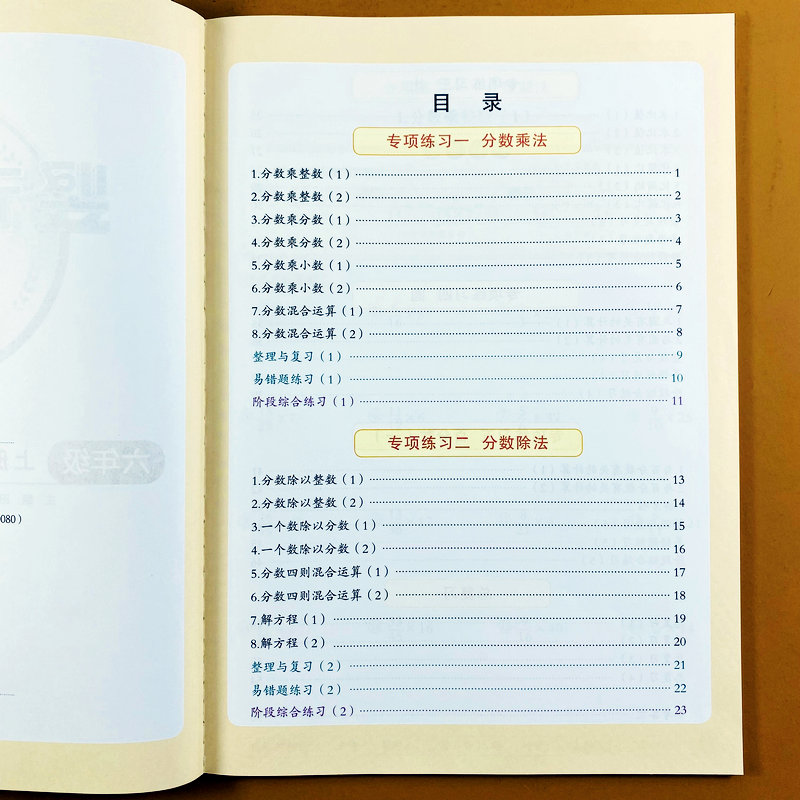 目 录
专项练习一 分数乘法
1.分数乘整数（1） 1
2.分数乘整数（2） 2
3.分数乘分数（1） 3
4.分数乘分数（2） 4
5.分数乘小数（1） 5
6.分数乘小数（2） 6
7.分数混合运算（1） 7
8.分数混合运算（2） 8
整理与复习（1） 9
易错题练习（1） 10
阶段综合练习（1） 11
专项练习二 分数除法
1.分数除以整数（1） 13
2.分数除以整数（2） 14
3.一个数除以分数（1） 15
4.一个数除以分数（2） 16
5.分数四则混合运算（1） 17
6.分数四则混合运算（2） 18
7.解方程（1） 19
8.解方程（2） 20
整理与复习（2） 21
易错题练习（2） 22
阶段综合练习（2） 23
六年级 上
080）